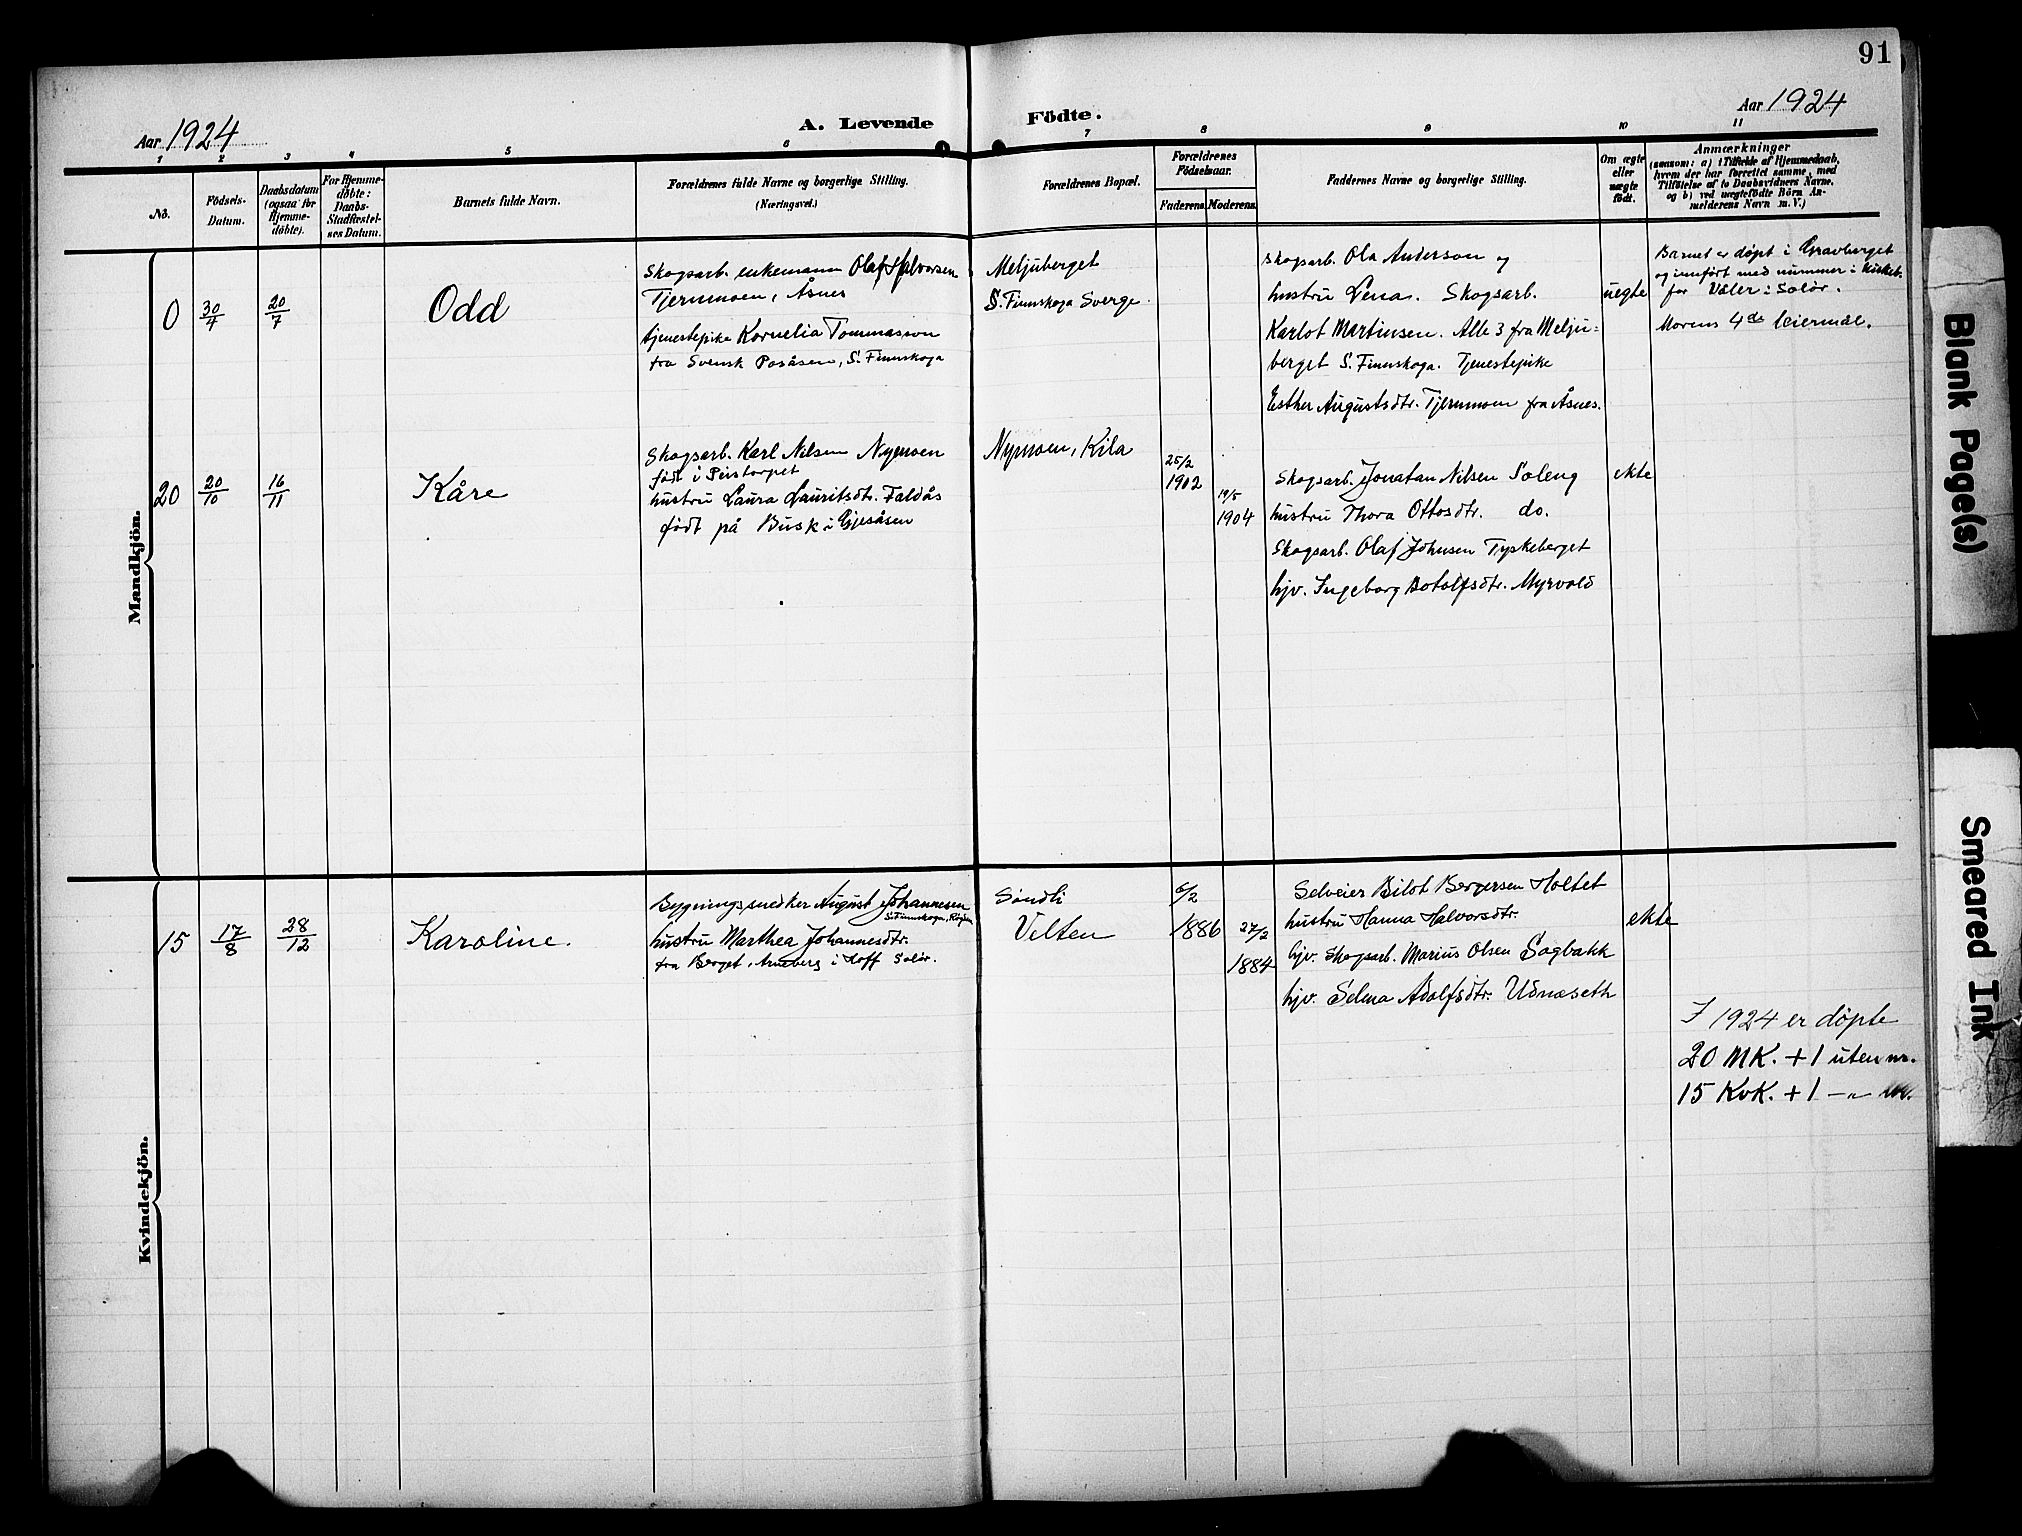 91
Aar 1924
A. Levende
Födte.
Aar 1924
1
2
3
4
5
6
7
8
9
10
11
No.
Födsels-
Datum.
Daabsdatum
(ogsaa for
Hjemme-
døbte).
For Hjemme-
døbte:
Daabs-
Stadfæstel-
ses Datum.
Barnets fulde Navn.
Forældrenes fulde Navne og borgerlige Stilling.
(Næringsvei.)
Forældrenes Bopæl.
Forældrenes
Födselsaar.
Faderens.
Moderens.
Faddernes Navne og borgerlige Stilling.
Om ægte
eller
uægte
født.
Anmærkninger
(saasom: a) i Tilfælde af Hjemmedaab,
hvem der har forrettet samme, med
Tilføielse af to Daabsvidners Navne,
og b) ved uægtefødte Börn An-
melderens Navn m. V.)
Mandkjön.
0
30/4
20/7
Odd
Skogsarb. enkemann Olaf Halvorsen
Tjernmoen, Åsnes
tjenestepike Kornelia Tommasson
fra Svensk Posåsen, S. Finnskoga
Meljuberget
S. Finnskoga Sverge.
Skogsarb. Ola Anderson og
hustru Lena. Skogsarb.
Karlot Martinsen. Alle 3 fra Melju-
berget S. Finnskoga. Tjenestepike
Esther Augustsdtr. Tjernmoen fra Åsnes.
uegte
Barnet er døpt i Gravberget
og innført med nummer i kirkeb.
for Våler i Solør.
Morens 4de leiermål.
20
20/10
16/11
Kåre
Skogsarb. Karl Nilsen Nymoen
født i Peistorpet
hustru Laura Lauritsdtr. Faldås
født på Busk i Gjesåsen
Nymoen, Kila
25/2
1902
19/5
1904
Skogsarb. Jonatan Nilsen Soleng
hustru Thora Ottosdtr. do.
Skogsarb. Olaf Johnsen Tyskeberget
hjv. Ingeborg Botolfsdtr. Myrvold
ekte
Kvindekjön.
15
17/8
28/12
Karoline.
Bygningssnedker August Johannesen
S. Finnskoga,
hustru Marthea Johannesdtr.
fra Berget, Arneberg i Hoff Solør.
Sondli
Velten
6/2
1886
27/2
1884
Selveier Bilot Bergersen Holtet
hustru Hanna Halvorsdtr.
hjv. Skogsarb. Marius Olsen Sagbakk
hjv. Selma Adolfsdtr. Udnæseth
ekte
I 1924 er døpte
20 MK. + 1 uten nr.
15 KvK. + 1 -"- nr.
Blank Page(s)
Smeared Ink